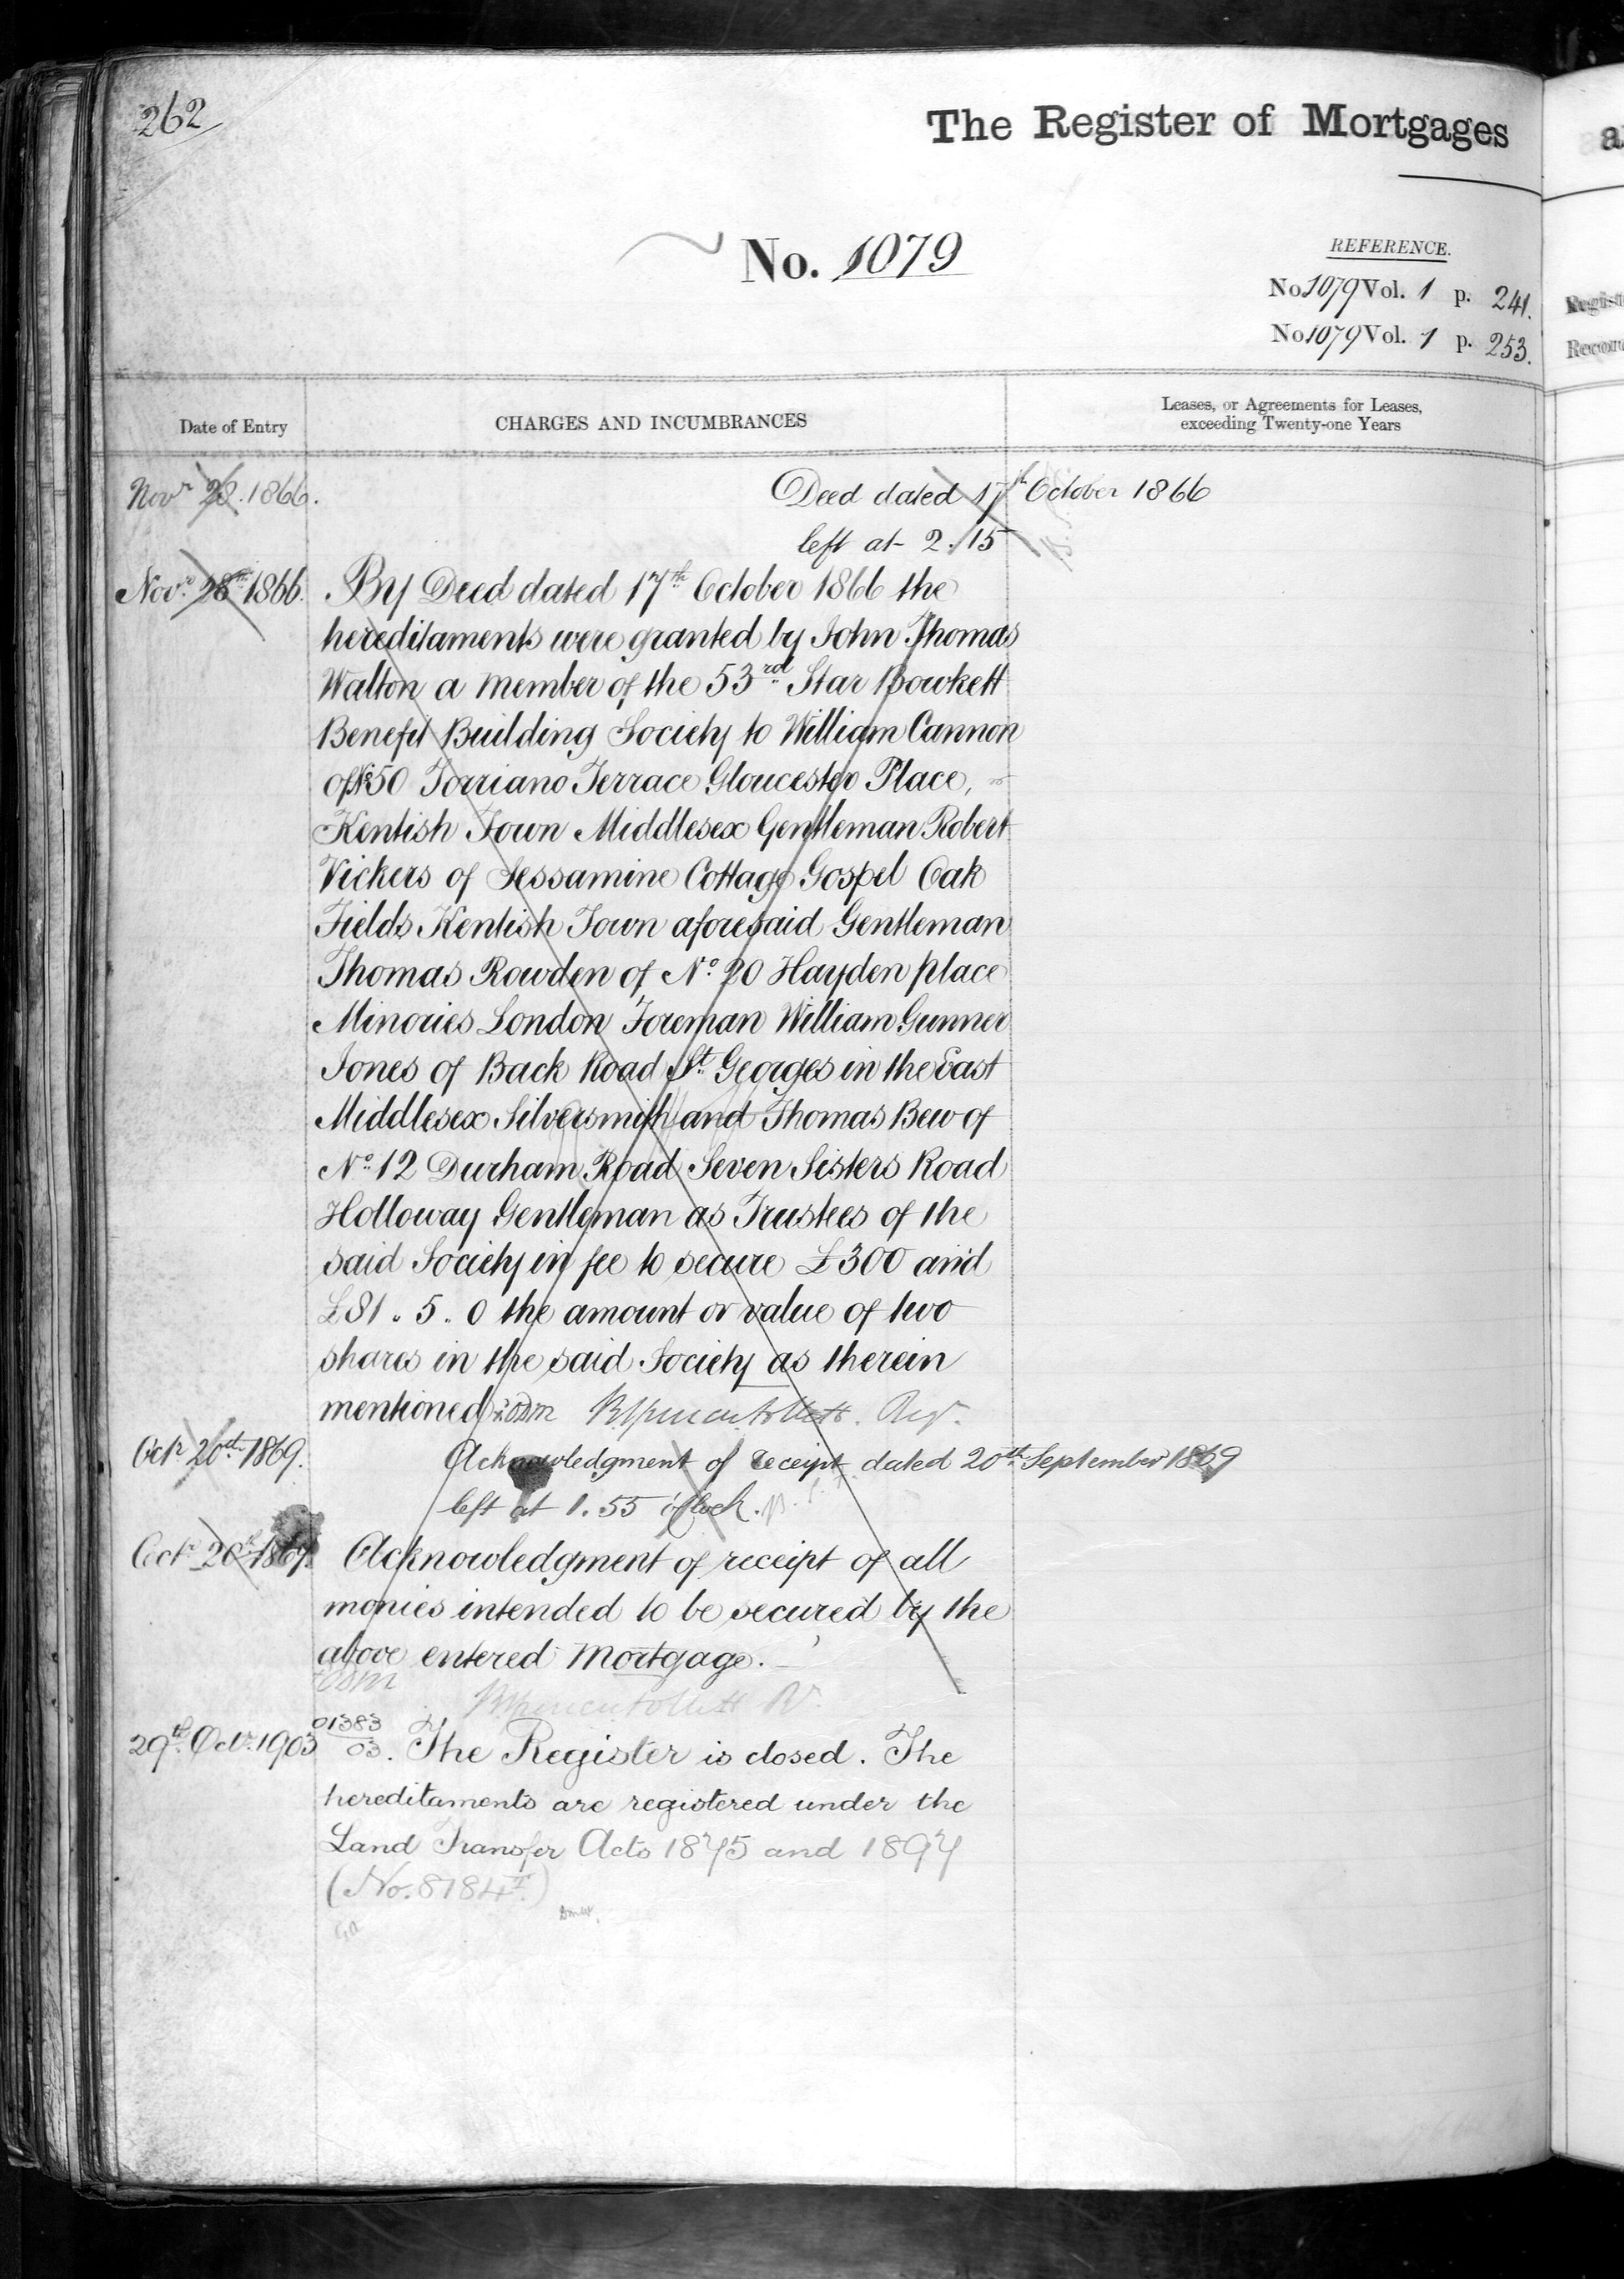 262
The Register of Mortgages
No. 1079
REFERENCE.
No 1079 Vol. 1 p. 241.
No 1079 Vol. 1 p. 253.
Date of Entry
CHARGES AND INCUMBRANCES
Leases, or Agreements for Leases,
exceeding Twenty-one Years
Novr 28. 1866. Deed dated 17th October 1866
left at 2.15
Novr 28th 1866. By Deed dated 17th October 1866 the
hereditaments were granted by John Thomas
Walton a member of the 53rd Star Bowkett
Benefit Building Society to William Cannon
of No 50 Torriano Terrace Gloucester Place,
Kentish Town Middlesex Gentleman Robert
Vickers of Jessamine Cottage Gospel Oak
Fields Kentish Town aforesaid Gentleman
Thomas Rowden of No 20 Hayden place
Minories London Foreman William Gunner
Jones of Back Road St Georges in the East
Middlesex Silversmith and Thomas Bew of
No 12 Durham Road Seven Sisters Road
Holloway Gentleman as Trustees of the
said Society in fee to secure £300 and
£81. 5. 0 the amount or value of two
shares in the said Society as therein
mentioned
Octr 20th 1869. Acknowledgment of receipt dated 20th September 1869
left at 1.55 o'Clock.
Octr 20th 1869. Acknowledgment of receipt of all
monies intended to be secured by the
above entered Mortgage.
01383
29th Octr 1903 03. The Register is closed. The
hereditaments are registered under the
Land Transfer Acts 1875 and 1897
(No. 8184)